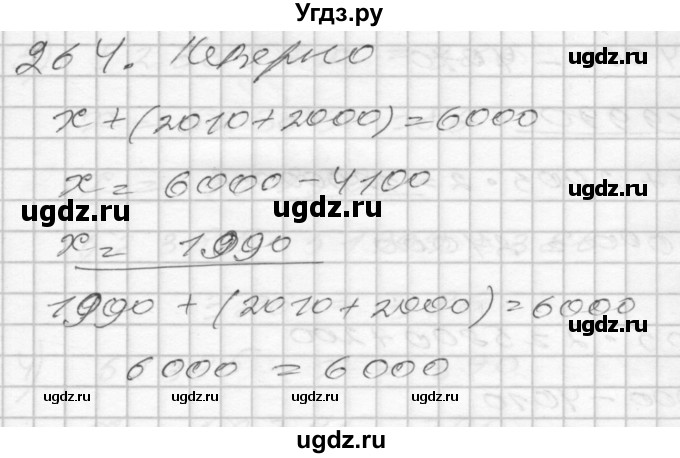 Угдз.ру
264. Неверно
x+(2010+2000)=6000
x= 6000-4100
x= 1990
1990 + (2010+2000)=6000
6000 = 6000
ugdz.ru
ugdz.ru
ugdz.ru
ugdz.ru
ugdz.ru
ugdz.ru
ugdz.ru
ugdz.ru
ugdz.ru